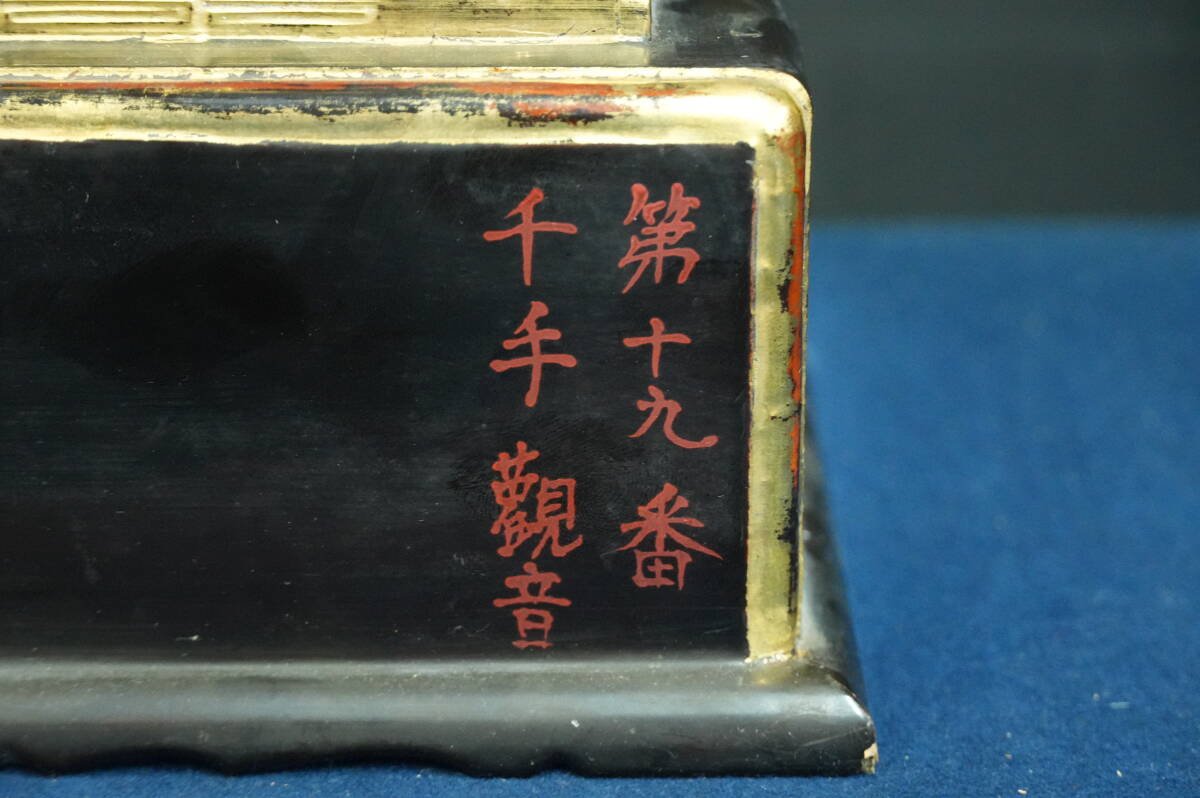 第十九番
千手觀音